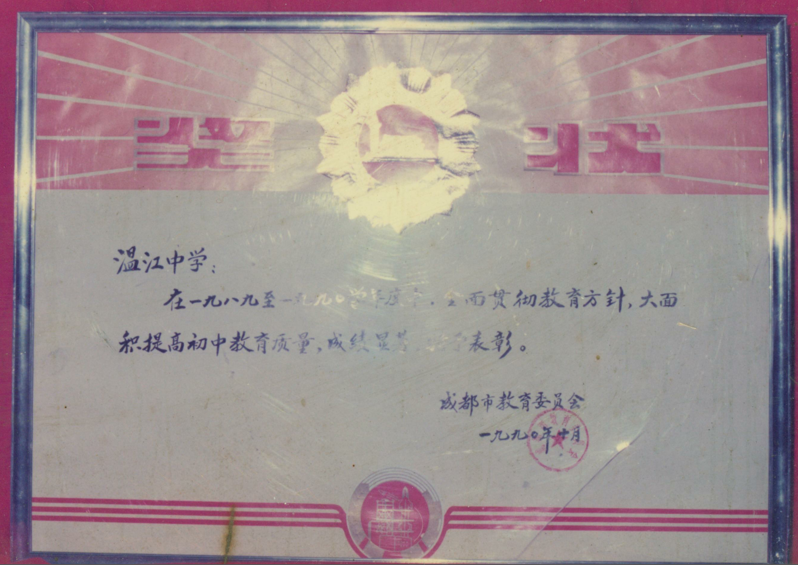 奖状
温江中学：
在一九八九至一九九〇学年度中，全面贯彻教育方针，大面
积提高初中教育质量，成绩显著 表彰。
成都市教育委员会
一九九〇年十月